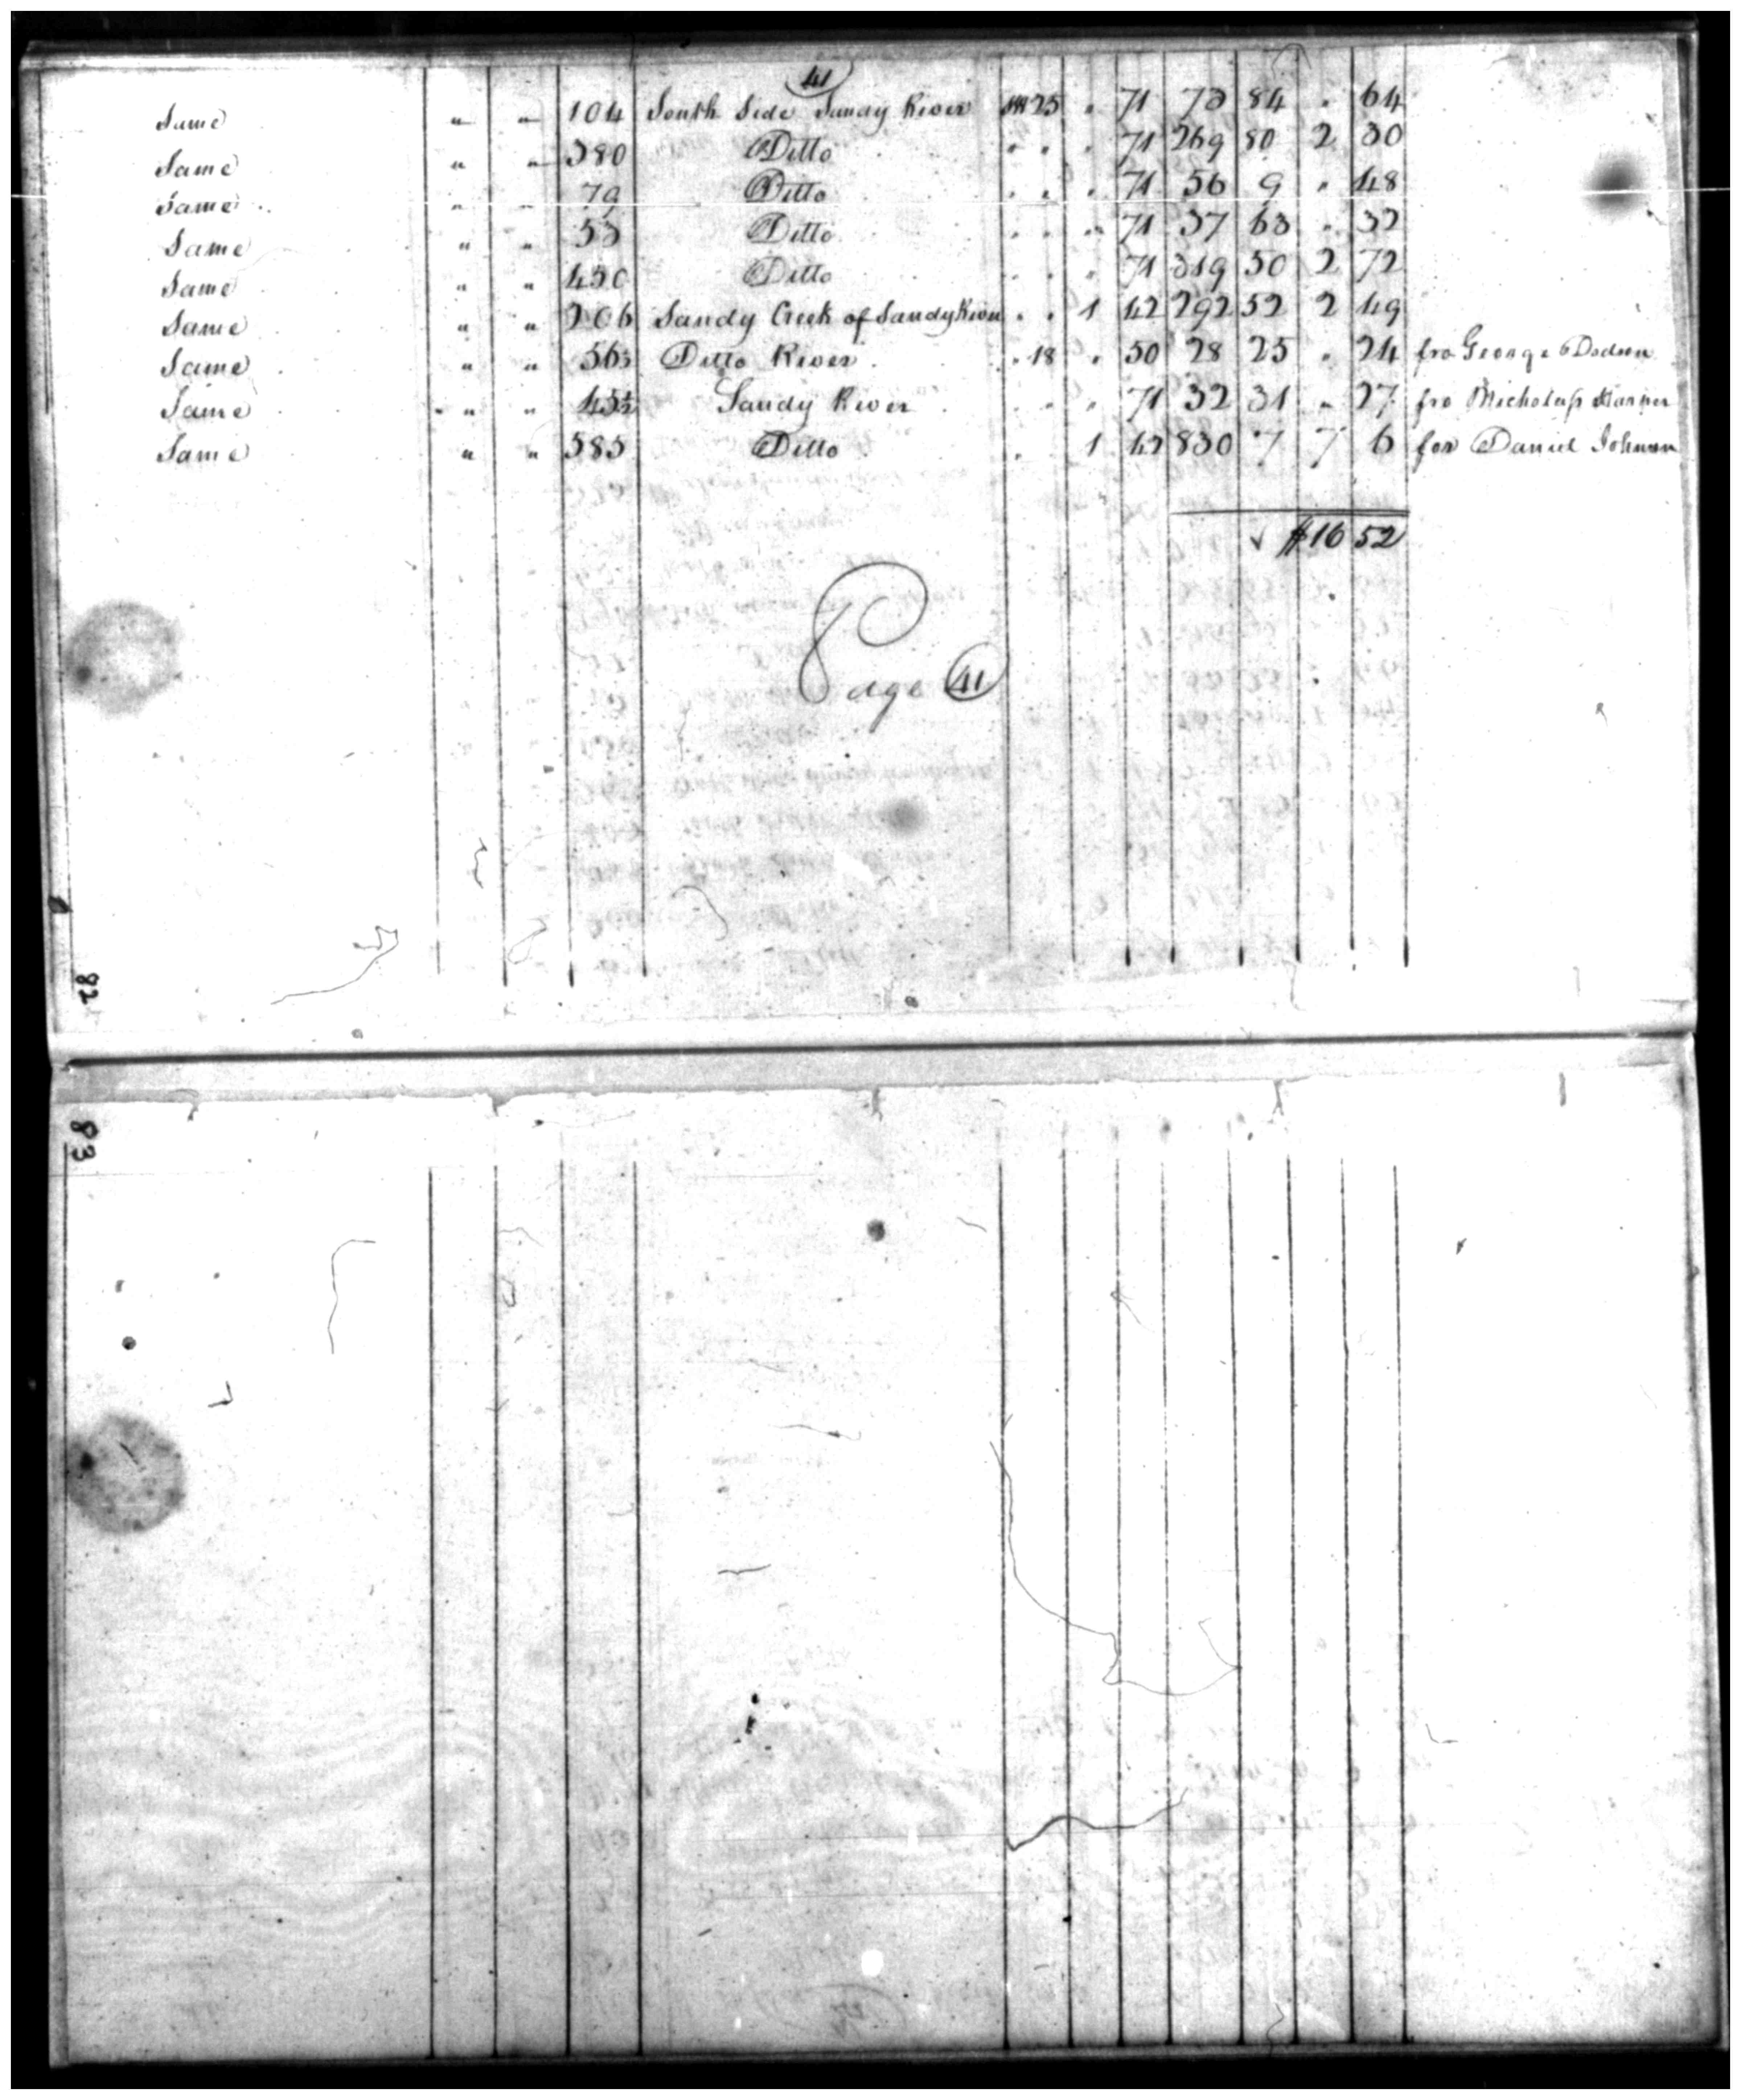 41
Same " " 104 South Side Sandy River NW 25 " 71 73 84 " 64
Same " " 380 Ditto " " " 71 269 80 2 30
Same " " 79 Ditto " " " 71 56 9 " 48
Same " " 53 Ditto " " " 71 37 63 " 32
Same " " 450 Ditto " " " 71 319 50 2 72
Same " " 206 Sandy Creek of Sandy River " " 1 42 292 52 2 49
Same " " 56½ Ditto River " 18 " 50 28 25 " 24 fro George Dodson
Same " " 45½ Sandy River " " " 71 32 31 " 27 fro Micholass Harper
Same " " 585 Ditto " 1 42 830 7 7 6 for Daniel Johnson
$16 52
Page 41
82
83